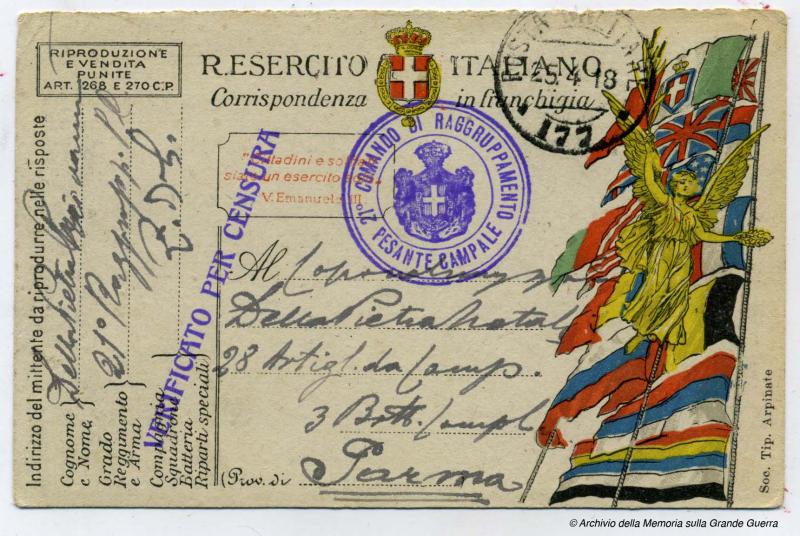 RIPRODUZIONE
E VENDITA
PUNITE
ART. 268 E 270 C.P.
R. ESERCITO ITALIANO
Corrispondenza in franchigia
POSTA MILITARE
25.4.18
177
"Cittadini e soldati
siate un esercito solo"
V. Emanuele III
21º COMANDO DI RAGGRUPPAMENTO
PESANTE CAMPALE
VERIFICATO PER CENSURA
Al
Della Pietra
28 Artigl. da Camp.
3 Batt.
(Prov. di Parma
Indirizzo del mittente da riprodurre nelle risposte
Cognome
e Nome,
Della Pietra
Grado
Reggimento
e Arma
21º Raggrupp.
Compagnia
Squadrone
Batteria
Riparti speciali
Soc. Tip. Arpinate
© Archivio della Memoria sulla Grande Guerra